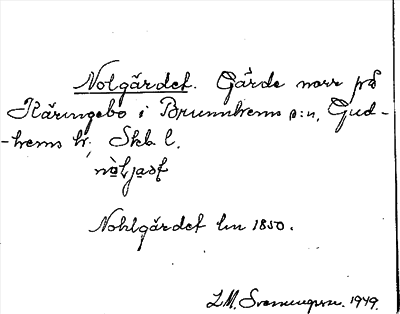 Nolgärdet. Gärde norr på
Käringebo i Brunnhems s:n, Gud-
-hems hr, Skb l.
Nohlgärdet lm 1850.
L.M. Svenungsson. 1949.